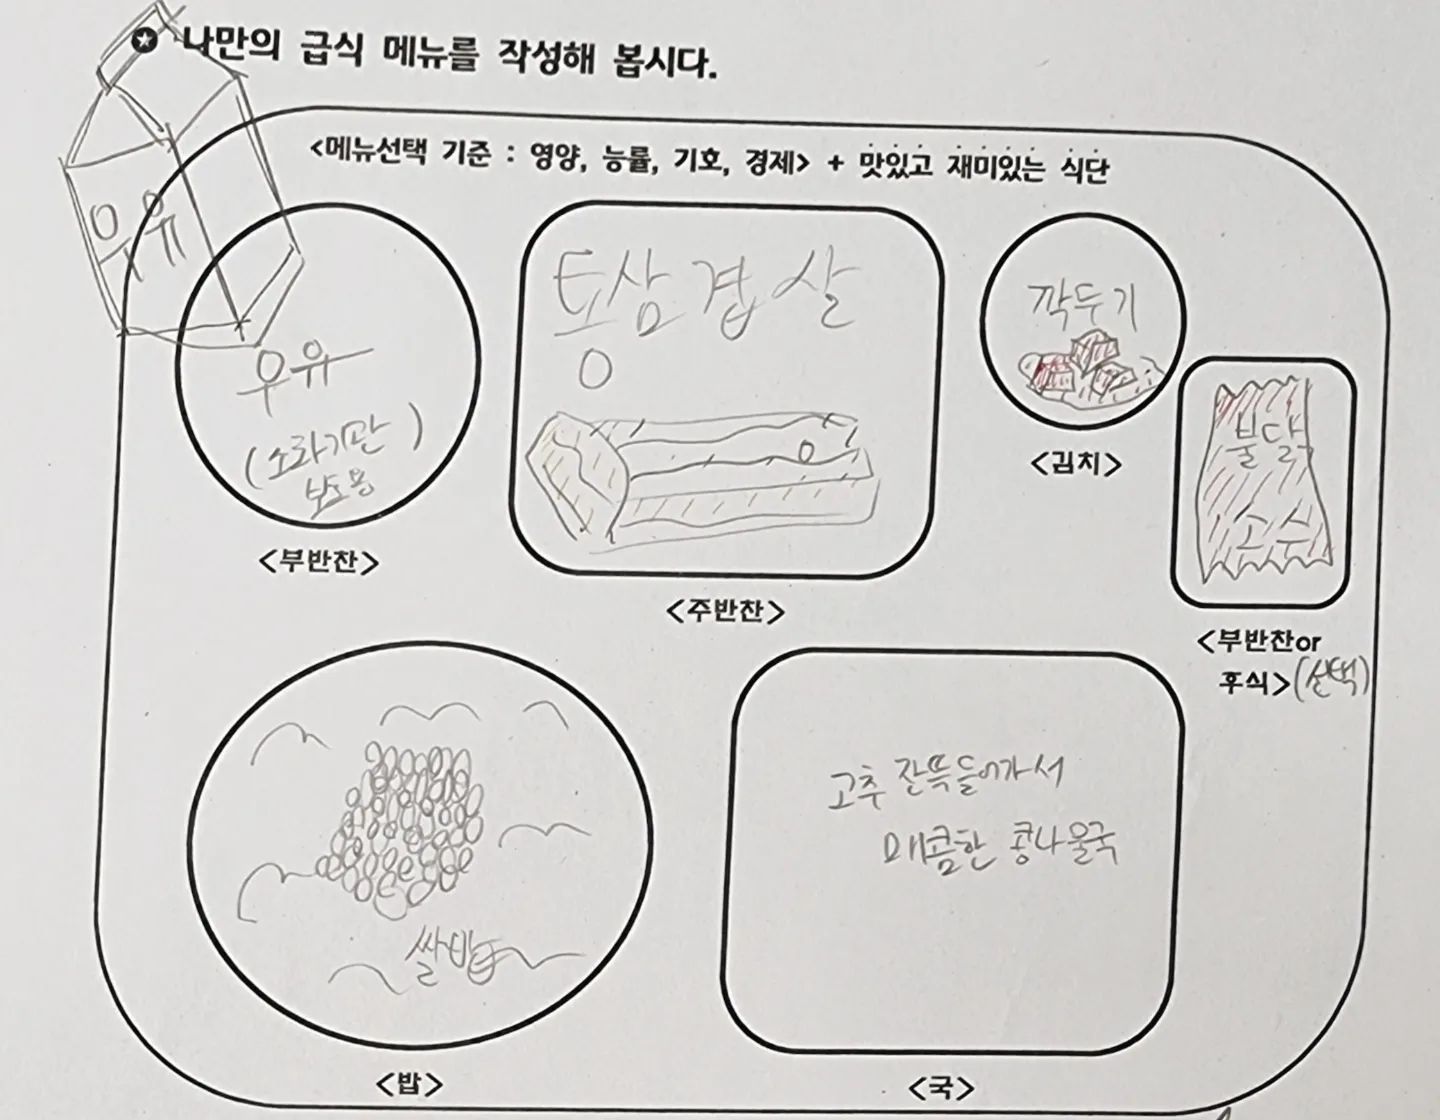 나만의 급식 메뉴를 작성해 봅시다.
<메뉴선택 기준 : 영양, 능률, 기호, 경제> + 맛있고 재미있는 식단
우유
우유
(소화기관)
보호용
<부반찬>
통삼겹살
<주반찬>
깍두기
<김치>
불닭
소스
<부반찬or
후식>(선택)
쌀밥
<밥>
고추 잔뜩들어가서
매콤한 콩나물국
<국>